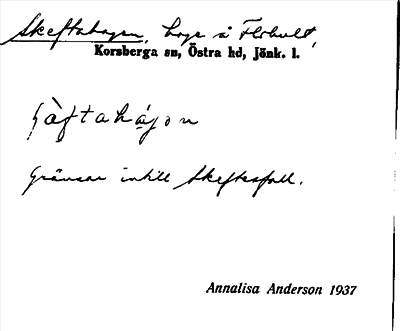 Skeftahagen, hage å Flohult,
Korsberga sn, Östra hd, Jönk. l.
Gränsar intill Skeftesfall.
Annalisa Anderson 1937